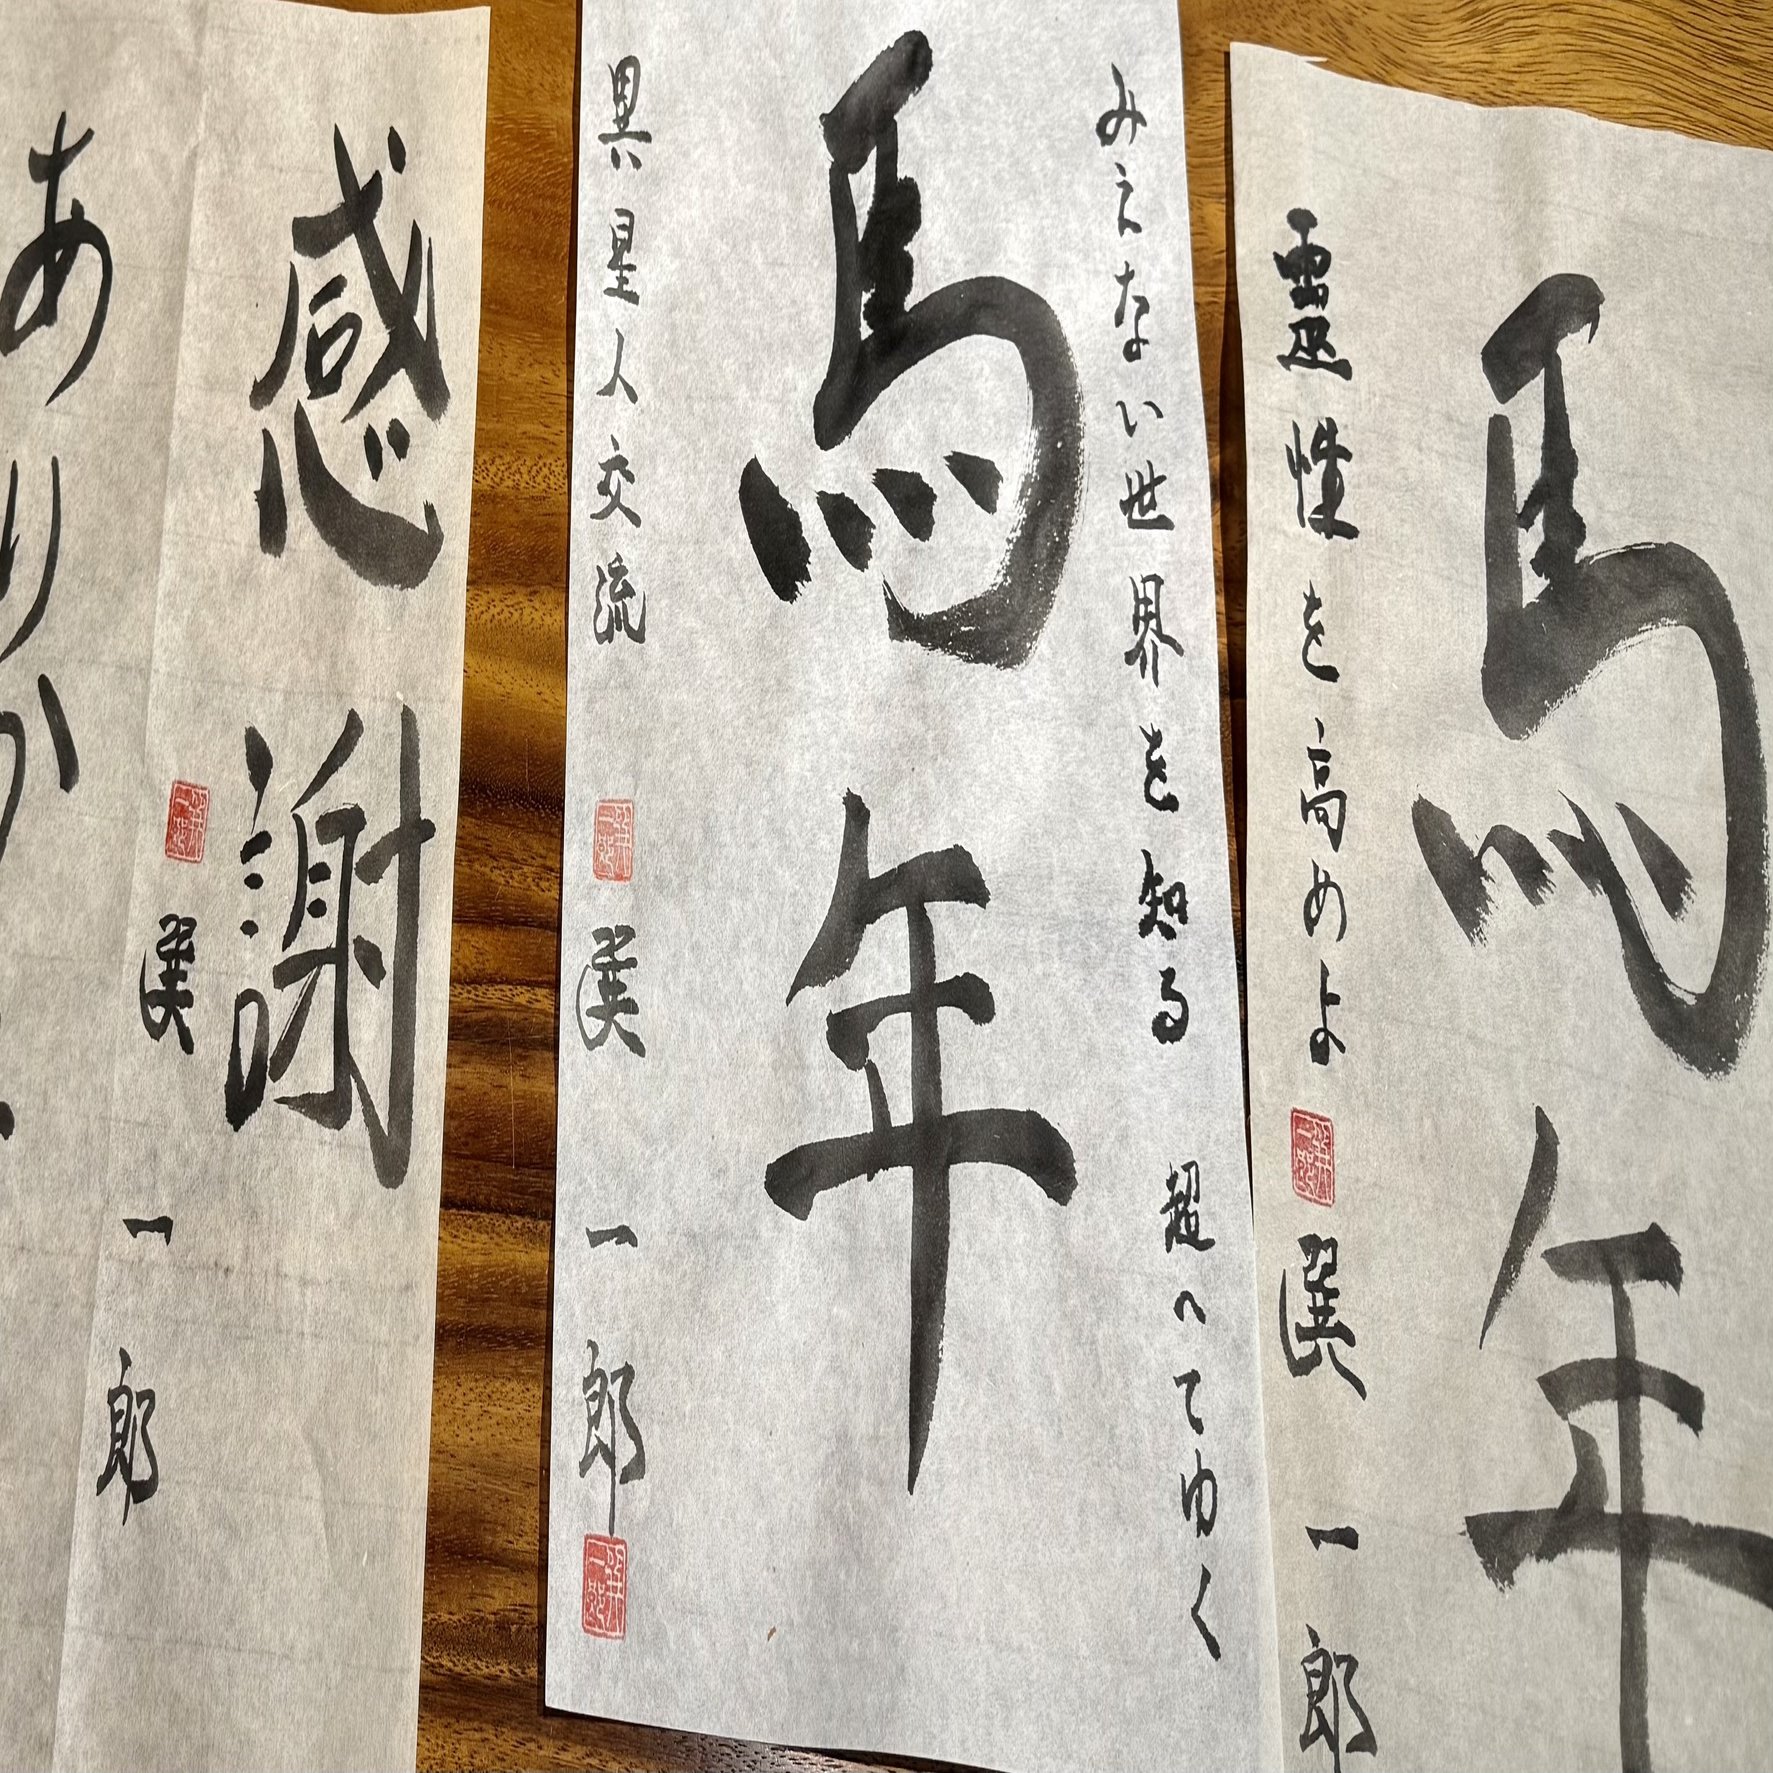 馬年
霊性を高めよ
選一郎
みえない世界を知る 超へてゆく
馬年
異星人交流
選一郎
感謝
選一郎
ありが